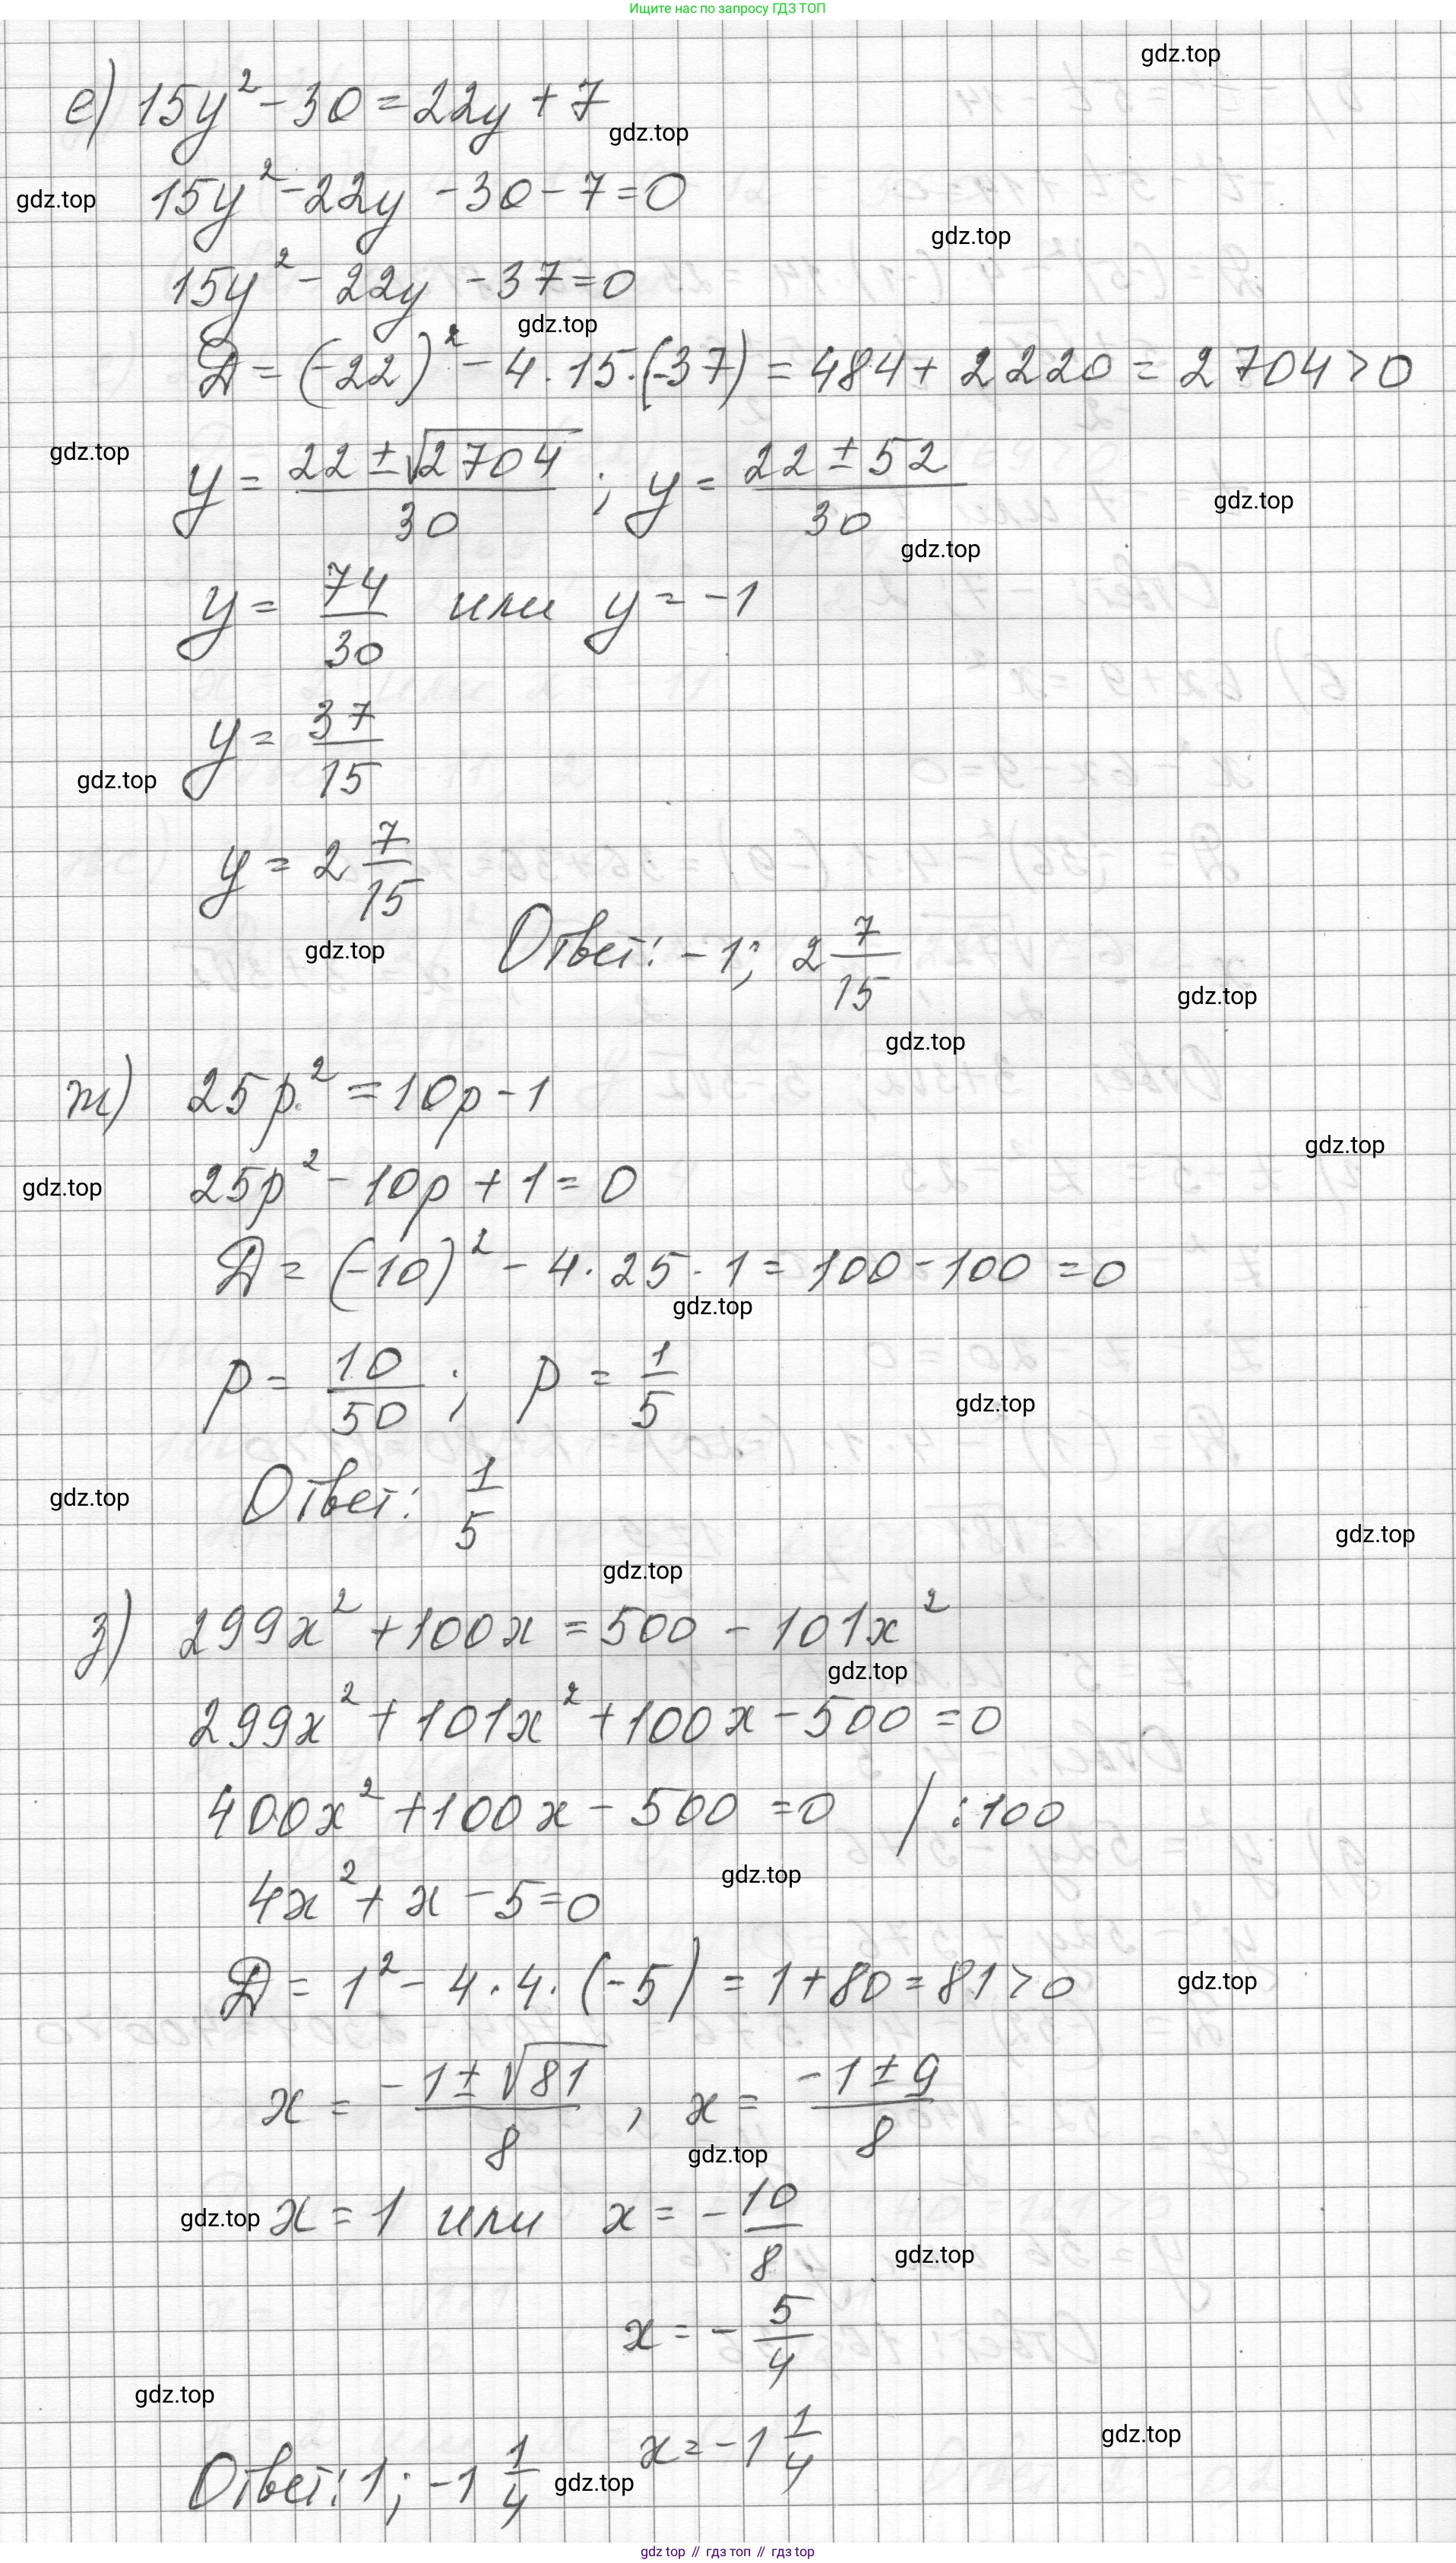 Ищите нас по запросу ГДЗ ТОП
gdz.top
е) 15y² - 30 = 22y + 7
gdz.top
15y² - 22y - 30 - 7 = 0
gdz.top
gdz.top
15y² - 22y - 37 = 0
gdz.top
Д = (-22)² - 4 · 15 · (-37) = 484 + 2220 = 2704 > 0
gdz.top
y = (22 ± √2704)/30 ; y = (22 ± 52)/30
gdz.top
gdz.top
y = 74/30 или y = -1
y = 37/15
gdz.top
y = 2 7/15
gdz.top
Ответ: -1; 2 7/15
gdz.top
gdz.top
ж) 25p² = 10p - 1
gdz.top
25p² - 10p + 1 = 0
gdz.top
Д = (-10)² - 4 · 25 · 1 = 100 - 100 = 0
gdz.top
p = 10/50 ; p = 1/5
gdz.top
Ответ: 1/5
gdz.top
gdz.top
gdz.top
з) 299x² + 100x = 500 - 101x²
gdz.top
299x² + 101x² + 100x - 500 = 0
400x² + 100x - 500 = 0 / : 100
gdz.top
4x² + x - 5 = 0
Д = 1² - 4 · 4 · (-5) = 1 + 80 = 81 > 0
gdz.top
x = (-1 ± √81)/8 , x = (-1 ± 9)/8
gdz.top
gdz.top
x = 1 или x = -10/8
gdz.top
x = - 5/4
gdz.top
x = -1 1/4
gdz.top
Ответ: 1; -1 1/4
gdz.top
gdz top // гдз топ // gdz top